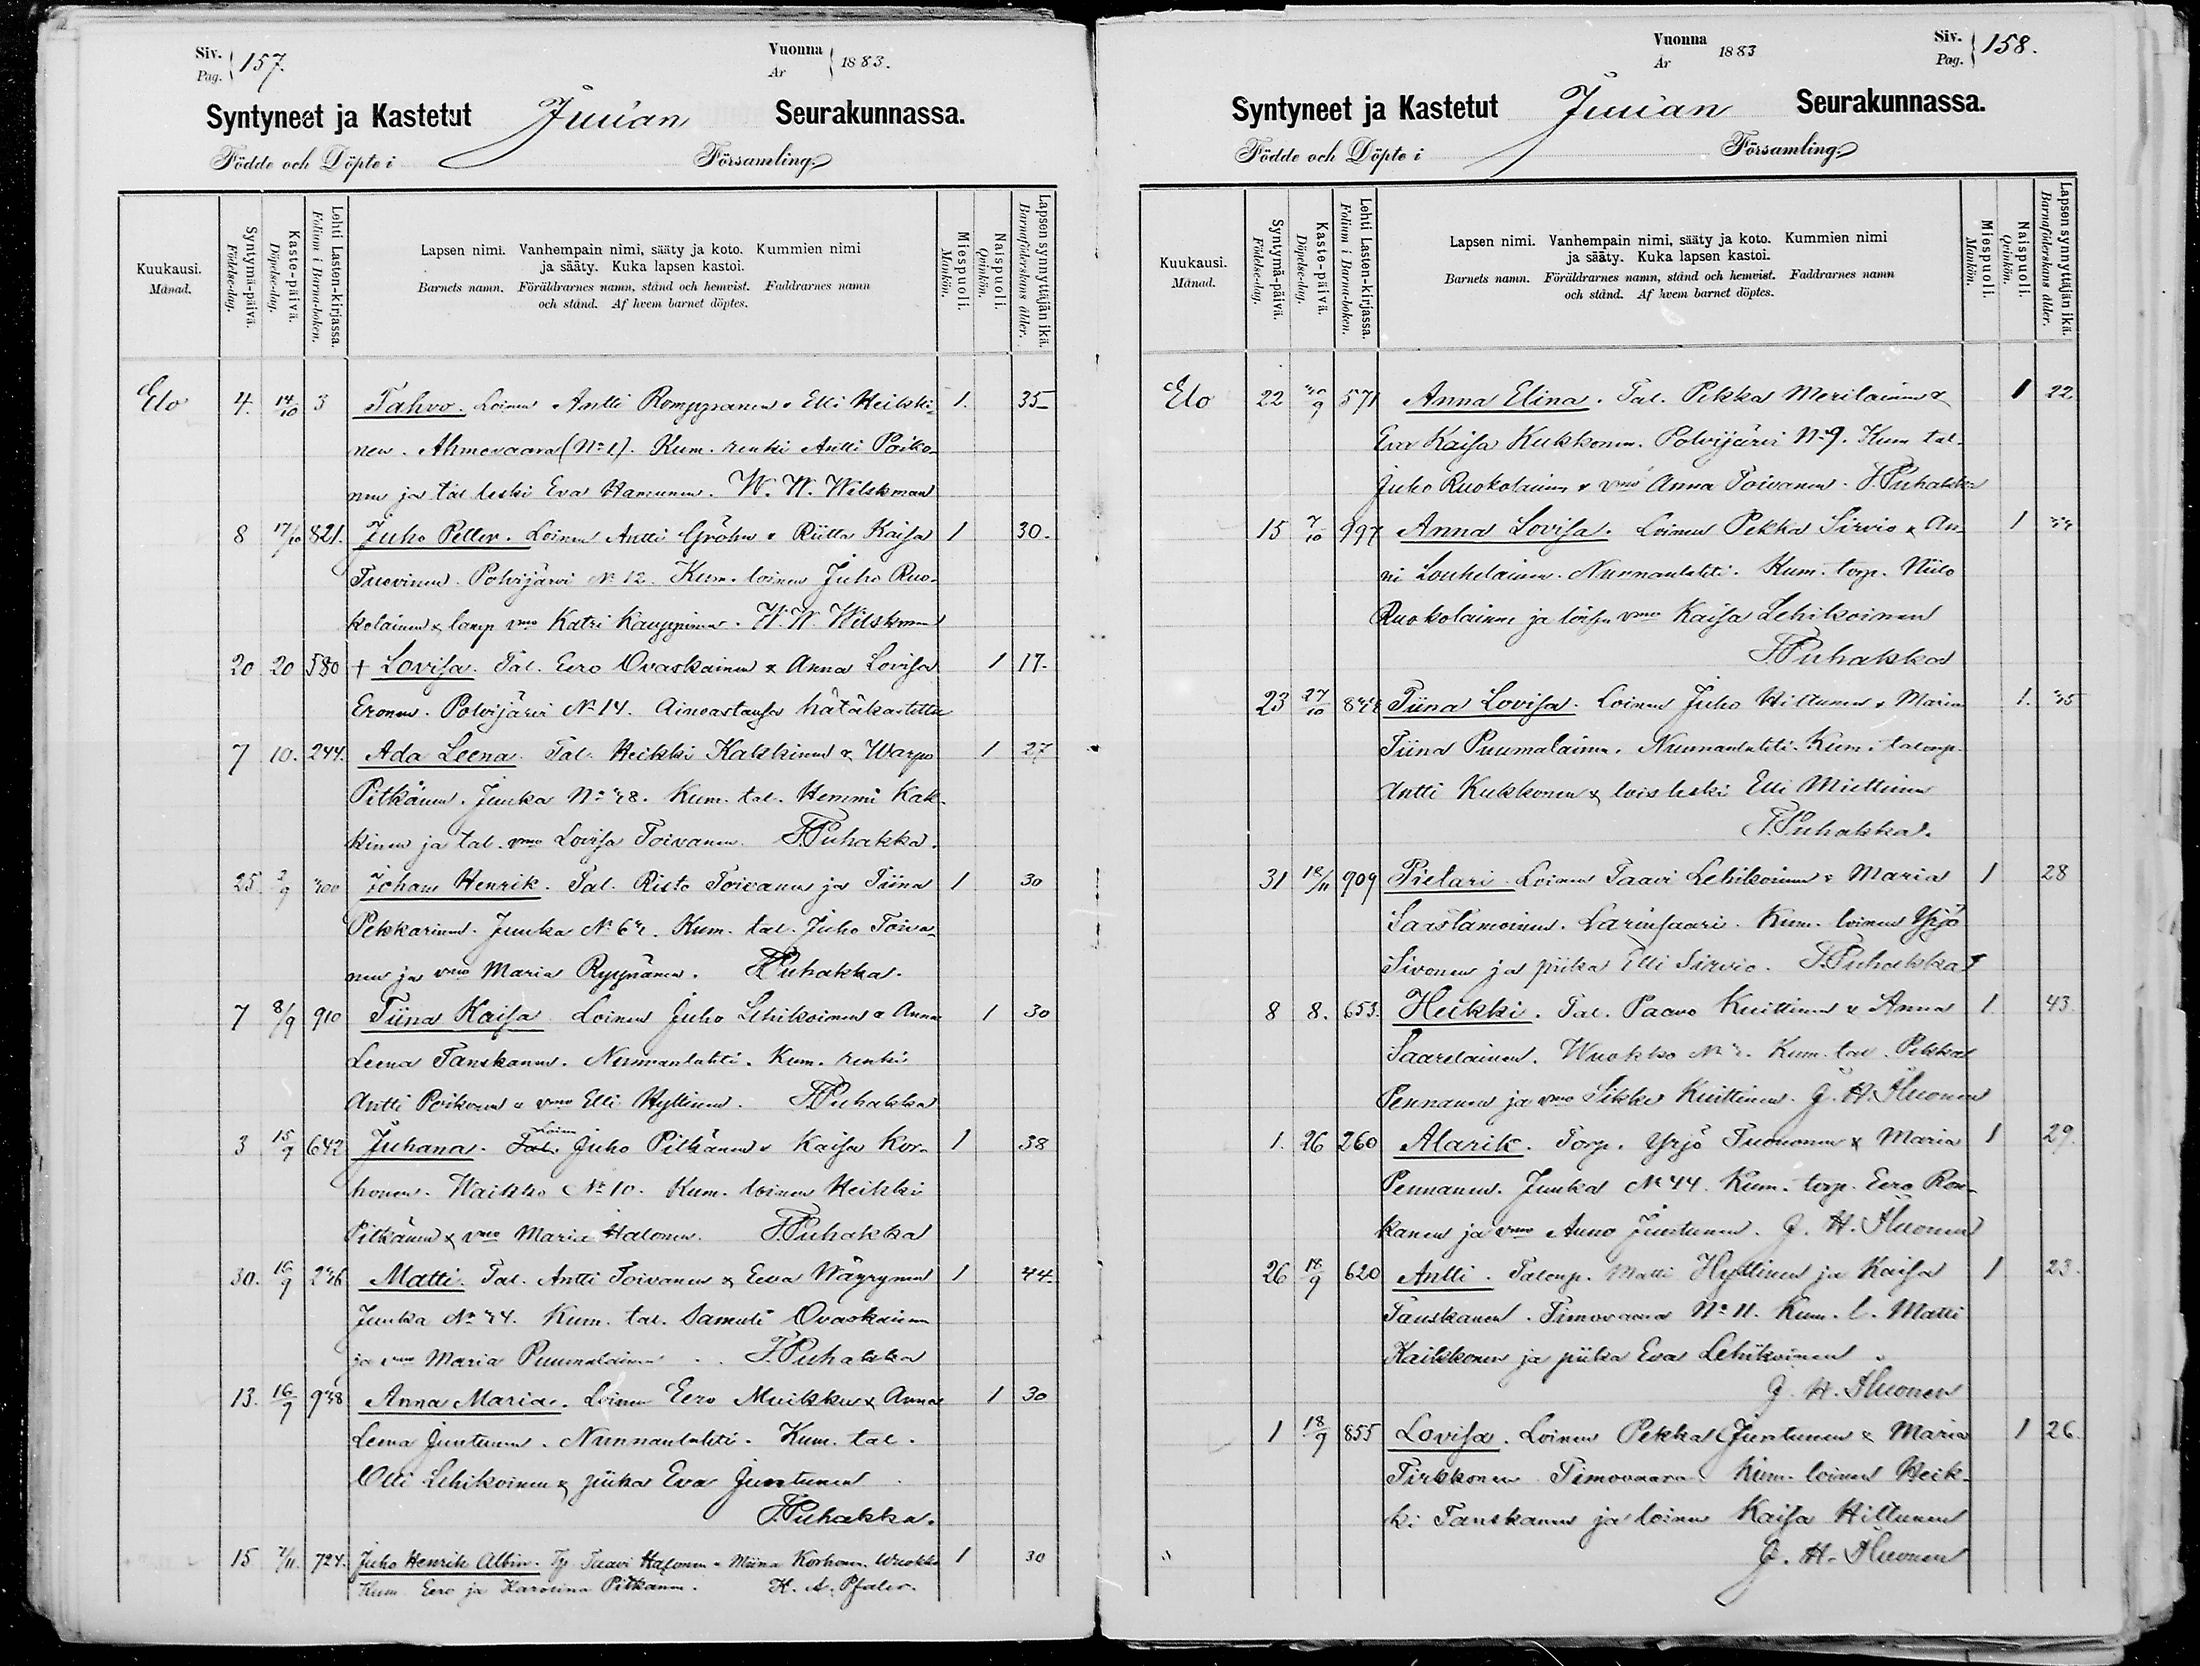 Siv. Pag. 157.
Vuonna År 1883.
Syntyneet ja Kastetut Juuan Seurakunnassa.
Födde och Döpte i Församling.
Kuukausi. Månad.
Syntymä-päivä. Födelse-dag.
Kaste-päivä. Döpelse-dag.
Lehti Lasten-kirjassa. Folium i Barna-boken.
Lapsen nimi. Vanhempain nimi, sääty ja koto. Kummien nimi
ja sääty. Kuka lapsen kastoi.
Barnets namn. Föräldrarnes namn, stånd och hemvist. Faddrarnes namn
och stånd. Af hvem barnet döptes.
Miespuoli. Mankön.
Naispuoli. Qvinkön.
Lapsen synnyttäjän ikä. Barnaföderskans ålder.
Elo 4. 14/10 3 Tahvo. Loinen Antti Romppanen & Elli Heikki- 1. 35
nen. Ahmovaara (No 1). Kum. renki Antti Poiko-
nen ja tal leski Eva Hamunen. W. W. Wilskman
8 17/10 821. Juho Petter. Loinen Antti Gröhn & Riitta Kaisa 1 30.
Tuovinen. Polvijärvi No 12. Kum. loinen Juho Ruo-
kolainen & lamp vmo Katri Kauppinen. W. W. Wilskman
20 20 580 + Lovisa. Tal. Eero Ovaskainen & Anna Lovisa 1 17.
Eronen. Polvijärvi No 14. Ainoastansa hätäkastettu
7 10. 244. Ada Leena. Tal. Heikki Kakkinen & Warpo 1 27
Pitkänen. Juuka No 28. Kum. tal. Hemmi Kak-
kinen ja tal. vmo Lovisa Toivanen. F. Puhakka.
25. 2/9 300 Johan Henrik. Tal. Risto Toivanen ja Tiina 1 30
Pekkarinen. Juuka No 62. Kum. tal. Juho Toiva-
nen ja vmo Maria Ryynänen. F. Puhakka.
7 8/9 910 Tiina Kaisa Loinen Juho Lehikoinen & Anna 1 30
Leena Tanskanen. Nunnanlahti. Kum. renki
Antti Poikonen & vmo Elli Hyttinen. F. Puhakka
3 15/9 642 Juhana. Tal. Loinen Juho Pitkänen & Kaisa Kor- 1 38
honen. Waikko No 10. Kum. loinen Heikki
Pitkänen & vmo Maria Halonen. F. Puhakka
30. 16/9 236 Matti. Tal. Antti Toivanen & Eeva Wäyrynen 1 44.
Juuka No 34. Kum. tal. Samuli Ovaskainen
ja vmo Maria Puumalainen. F. Puhakka
13. 16/9 938 Anna Maria. Loinen Eero Muikku & Anna 1 30
Leena Juntunen. Nunnanlahti. Kum. tal.
Olli Lehikoinen & piika Eva Juntunen
F. Puhakka.
15 7/11. 724. Juho Henrik Albin. Taavi Halonen & Miina Korhonen. Wuokko 1 30
Kum. Eero ja Karolina Pitkänen. K. A. Pfaler.
Vuonna År 1883
Siv. Pag. 158.
Syntyneet ja Kastetut Juuan Seurakunnassa.
Födde och Döpte i Församling.
Kuukausi. Månad.
Syntymä-päivä. Födelse-dag.
Kaste-päivä. Döpelse-dag.
Lehti Lasten-kirjassa. Folium i Barna-boken.
Lapsen nimi. Vanhempain nimi, sääty ja koto. Kummien nimi
ja sääty. Kuka lapsen kastoi.
Barnets namn. Föräldrarnes namn, stånd och hemvist. Faddrarnes namn
och stånd. Af hvem barnet döptes.
Miespuoli. Mankön.
Naispuoli. Qvinkön.
Lapsen synnyttäjän ikä. Barnaföderskans ålder.
Elo 22 30/9 571 Anna Elina. Tal. Pekka Meriläinen & 1 22.
Eva Kaisa Kukkonen. Polvijärvi No 9. Kum tal.
Juho Ruokolainen & vmo Anna Toivanen. F. Puhakka
15 7/10 997 Anna Lovisa. Loinen Pekka Sirvio & An- 1 33
ni Louhelainen. Nunnanlahti. Kum. torp. Niilo
Ruokolainen ja vmo Kaisa Lehikoinen
F. Puhakka
23 27/10 Tiina Lovisa. Loinen Juho Hiltunen & Maria 1. 35
Tiina Puumalainen. Nunnanlahti. Kum. talonp.
Antti Kukkonen & loisleski Elli Miettinen
F. Puhakka.
31 18/11 909 Pielari. Loinen Taavi Lehikoinen & Maria 1 28
Saastamoinen. Larinsaari. Kum. loinen Yrjö
Sivonen ja piika Elli Sirvio. F. Puhakka
8 8. 653. Heikki. Tal. Paavo Kuittinen & Anna 1. 43.
Saarelainen. Wuokko No 2. Kum. tal. Pekka
Pennanen ja vmo Sikke Kuittinen. G. H. Huonen
1. 26 260 Alarik. Torp. Yrjö Tuononen & Maria 1 29.
Pennanen. Juuka No 44. Kum. torp. Eero Ron-
kanen ja vmo Anno Juntunen. G. H. Huonen
26 18/9 620 Antti. Talonp. Matti Hyttinen ja Kaisa 1 23.
Tanskanen. Timovaara No 11. Kum. l. Matti
Kaikkonen ja piika Eva Lehikoinen
G. H. Huonen
1 18/9 855 Lovisa. Loinen Pekka Juntunen & Maria 1 26.
Tirkkonen Timovaara. Kum. loinen Heik-
ki Tanskanen ja loinen Kaisa Hiltunen
G. H. Huonen